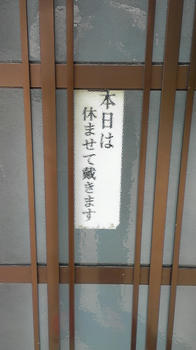 本日は
休ませて戴きます